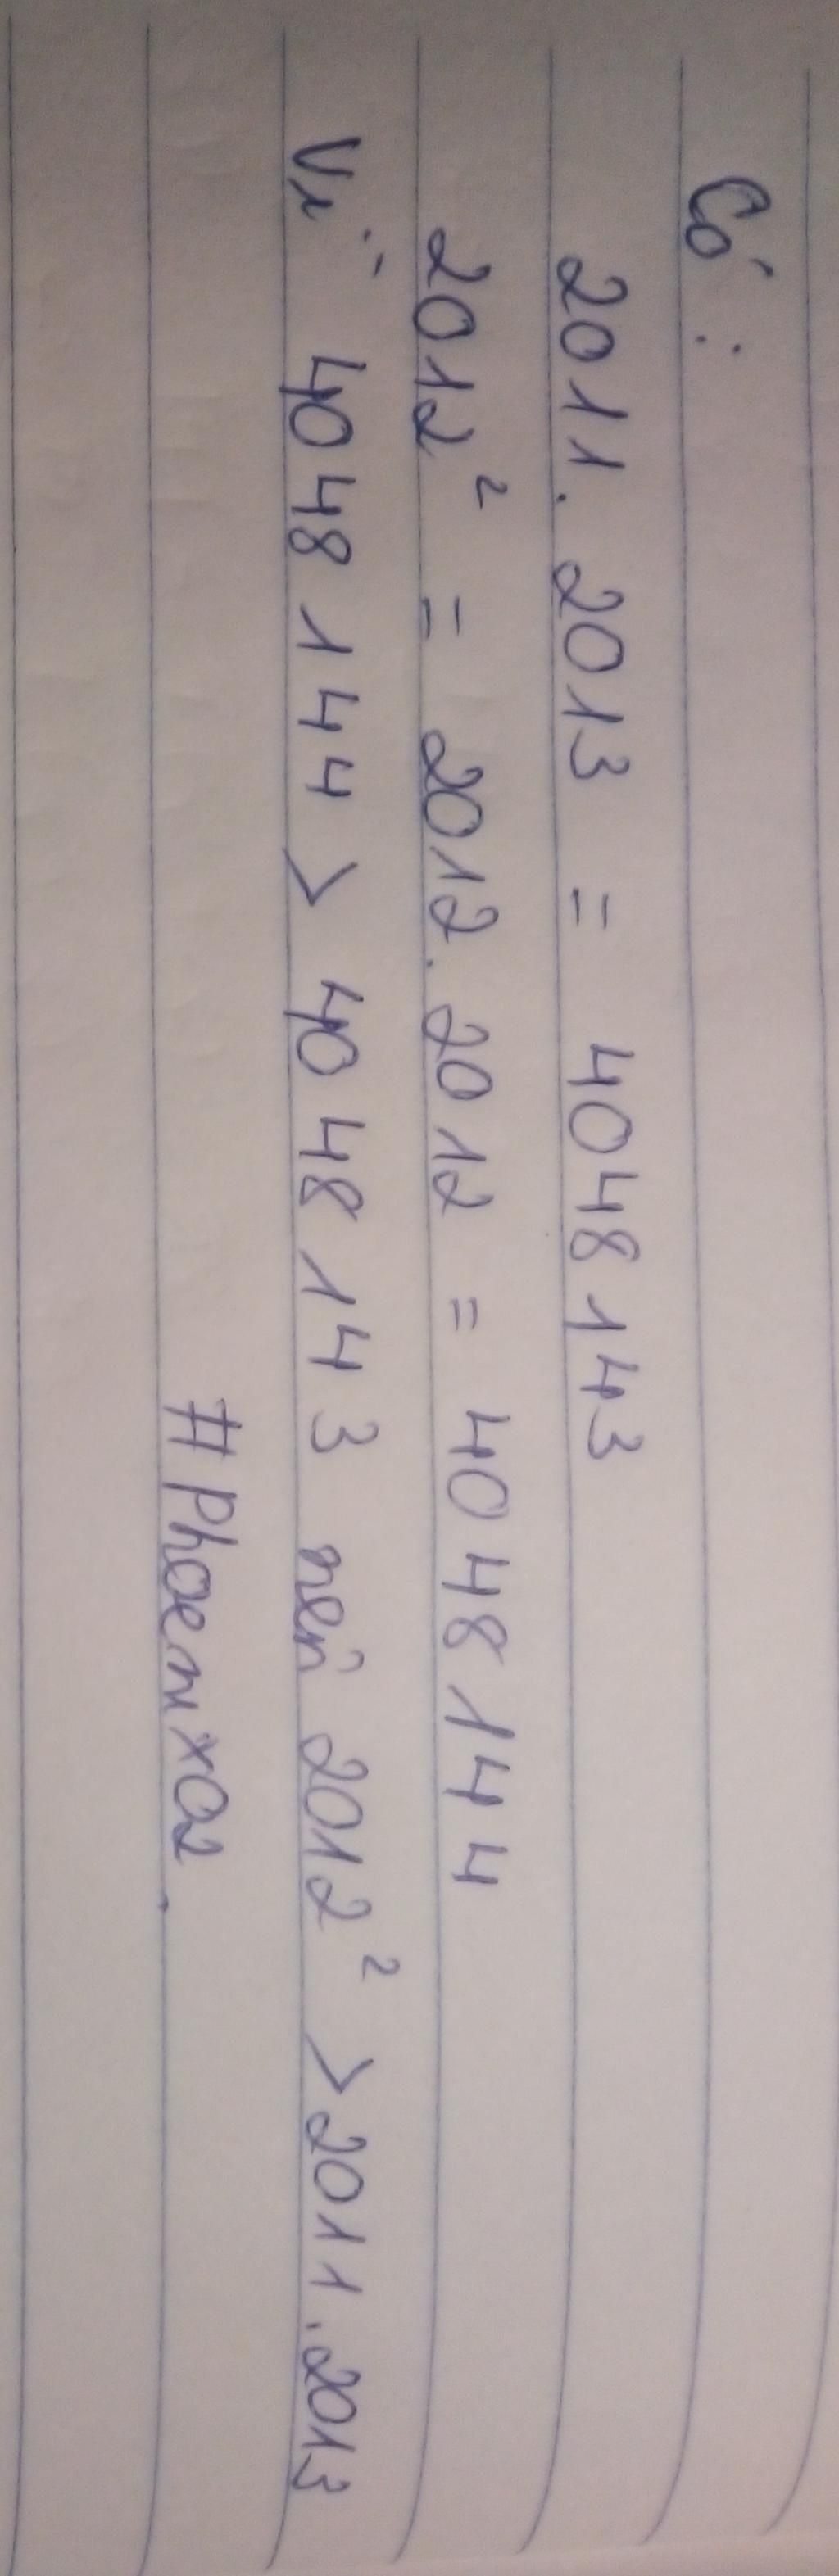 Có :
2011. 2013 = 4048143
2012² = 2012. 2012 = 4048144
Vì 4048144 > 4048143 nên 2012² > 2011.2013
#Phoenixa2.